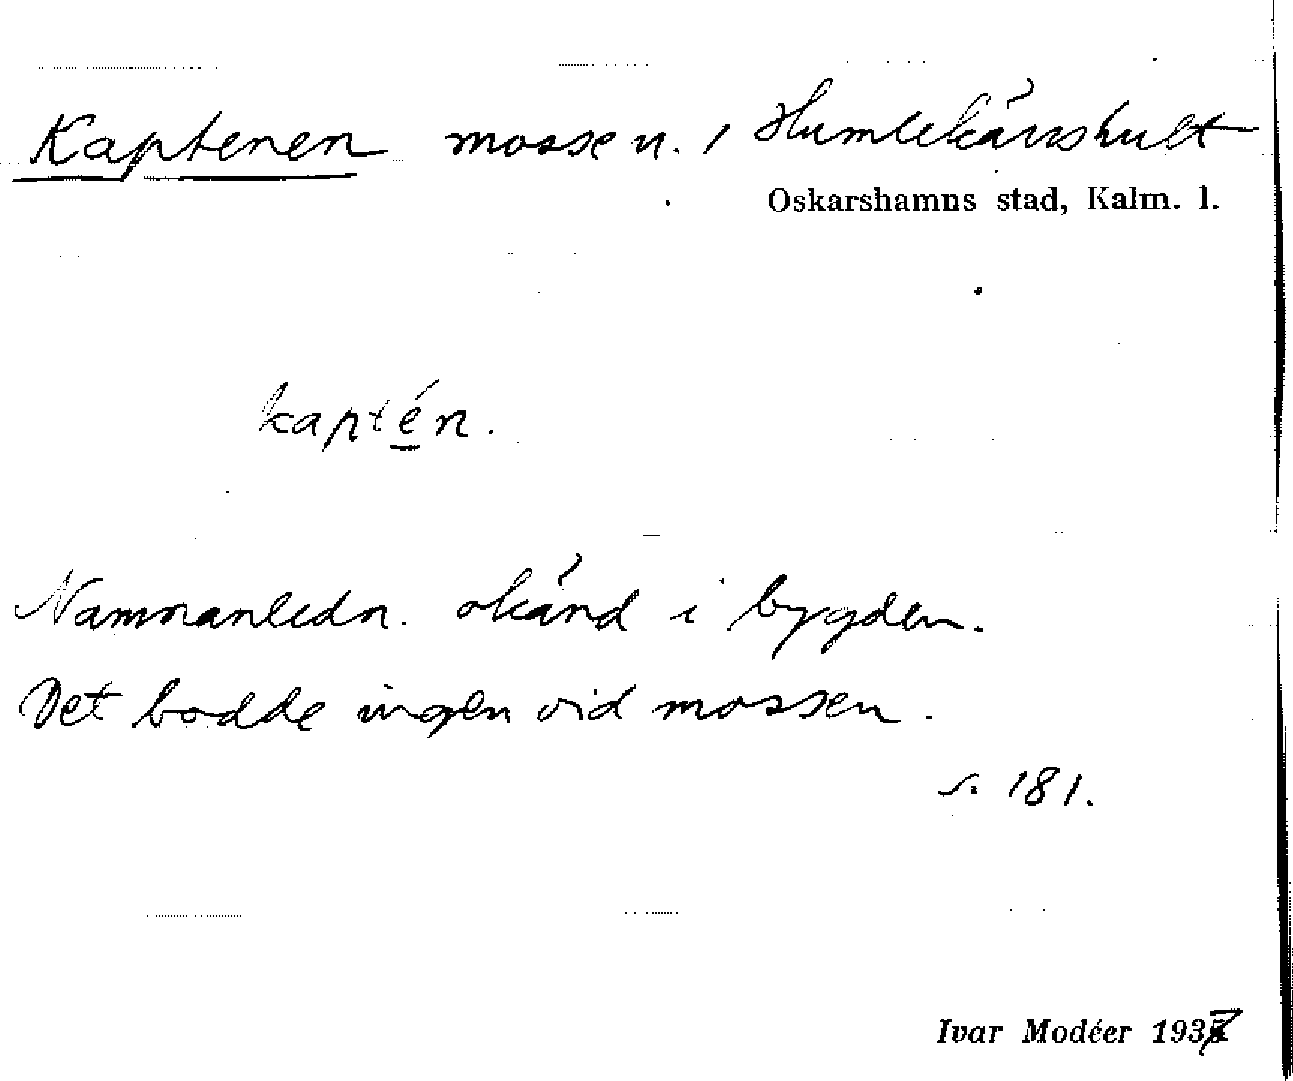 Kaptenen mossen. i Humlekärrshult
Oskarshamns stad, Kalm. l.
kaptén.
Namnanledn. okänd i bygden.
Det bodde ingen vid mossen.
s. 181.
Ivar Modéer 1937